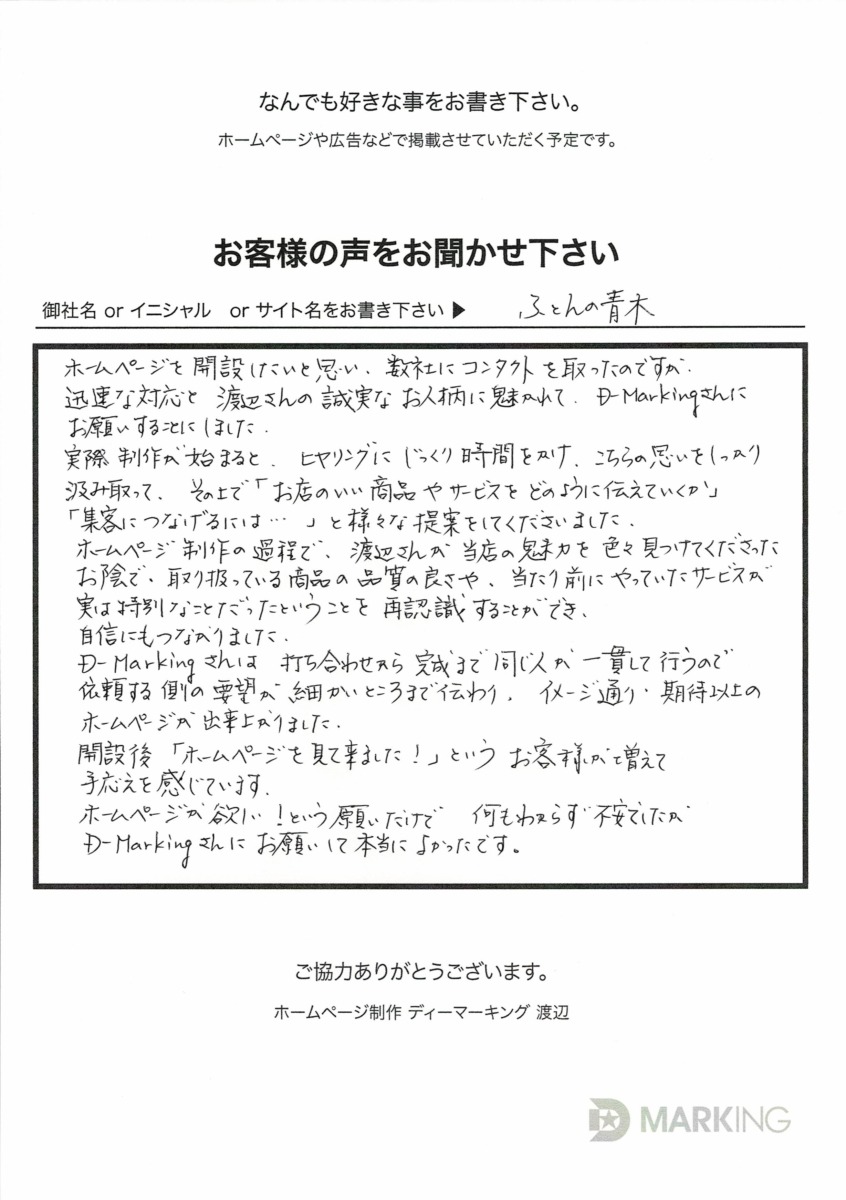 なんでも好きな事をお書き下さい。
ホームページや広告などで掲載させていただく予定です。
お客様の声をお聞かせ下さい
御社名 or イニシャル　or サイト名をお書き下さい▶ ふとんの青木
ホームページを開設したいと思い、数社にコンタクトを取ったのですが、
迅速な対応と渡辺さんの誠実なお人柄に魅かれて、D-Markingさんに
お願いすることにしました。
実際制作が始まると、ヒヤリングにじっくり時間をかけ、こちらの思いをしっかり
汲み取って、その上で「お店のいい商品やサービスをどのように伝えていくか」
「集客につなげるには…」と様々な提案をしてくださいました。
ホームページ制作の過程で、渡辺さんが当店の魅力を色々見つけてくださった
お陰で、取り扱っている商品の品質の良さや、当たり前にやっていたサービスが
実は特別なことだったということを再認識することができ、
自信にもつながりました。
D-Markingさんは打ち合わせから完成まで同じ人が一貫して行うので
依頼する側の要望が細かいところまで伝わり、イメージ通り・期待以上の
ホームページが出来上がりました。
開設後「ホームページを見て来ました！」というお客様が増えて
手応えを感じています。
ホームページが欲しい！という願いだけで　何もわからず不安でしたが
D-Markingさんにお願いして本当によかったです。
ご協力ありがとうございます。
ホームページ制作 ディーマーキング 渡辺
D MARKING